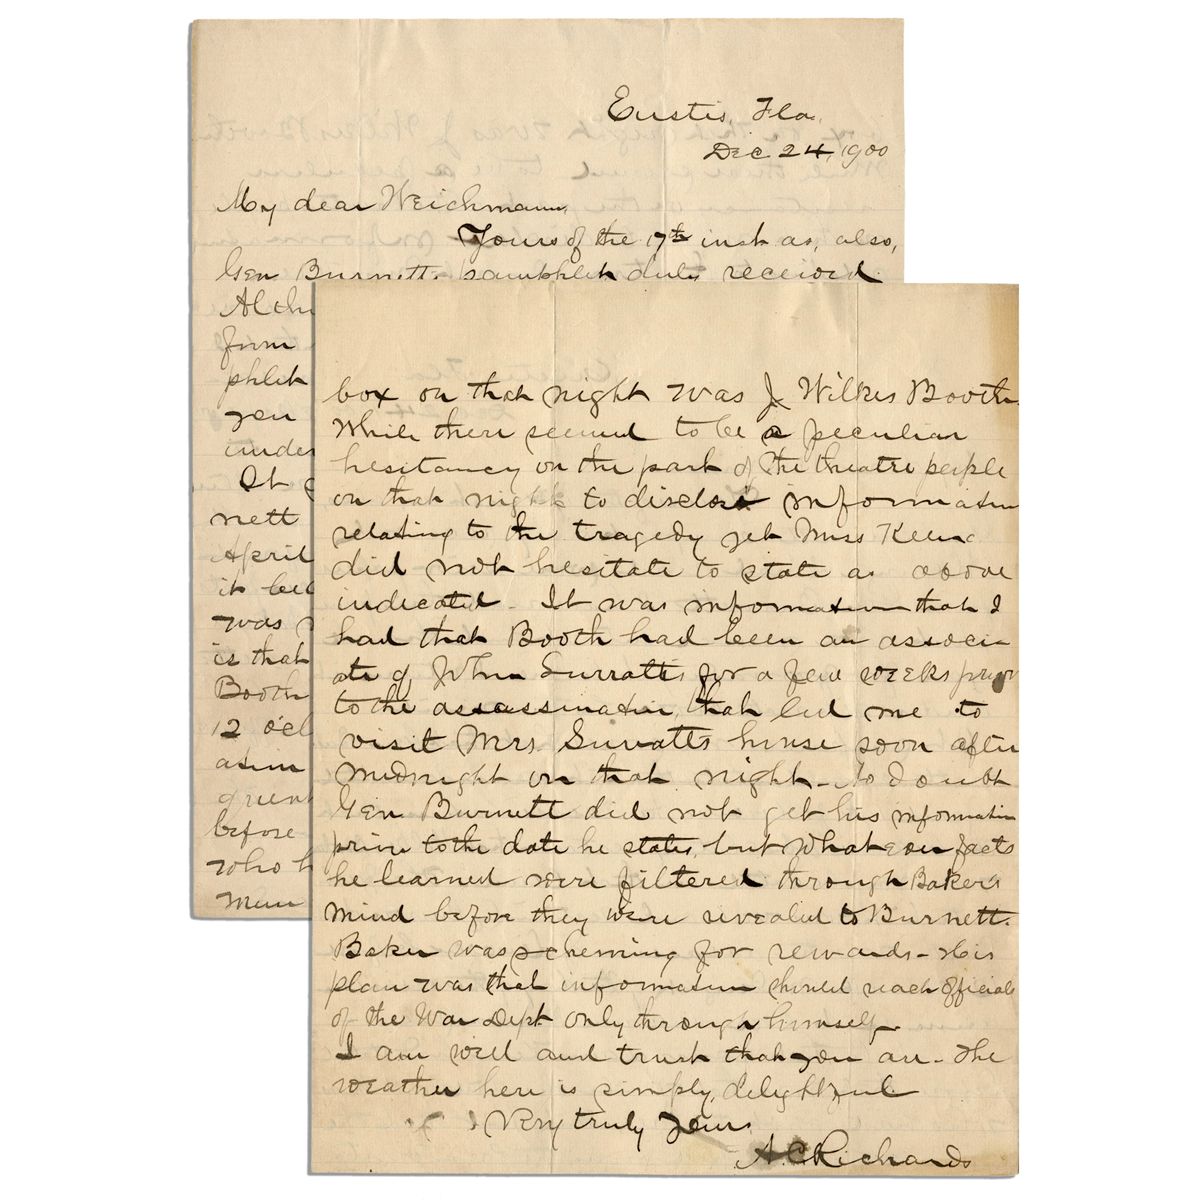 Eustis, Fla.
Dec 24, 1900
My dear Weichmann,
Yours of the 17th inst as, also,
Gen Burnett's pamphlet duly received.
Altho
form
phlet
you
under
It
nett
April
it be
was
is that
Booth
12 o'cl
assin
quent
before
who h
man
box on that night was J Wilkes Booth.
While there seemed to be a peculiar
hesitancy on the part of the theatre people
on that night to disclose information
relating to the tragedy yet Miss Keene
did not hesitate to state as above
indicated - It was information that I
had that Booth had been an associ
ate of John Surratts for a few weeks prior
to the assassination, that led me to
visit Mrs. Surratts house soon after
midnight on that night - No doubt
Gen Burnett did not get his information
prior to the date he states, but whatever facts
he learned were filtered through Baker's
mind before they were revealed to Burnett.
Baker was scheming for rewards - His
plan was that information should reach officials
of the War Dept only through himself.
I am well and trust that you are - The
weather here is simply, delightful.
Very truly yours
A. C. Richards